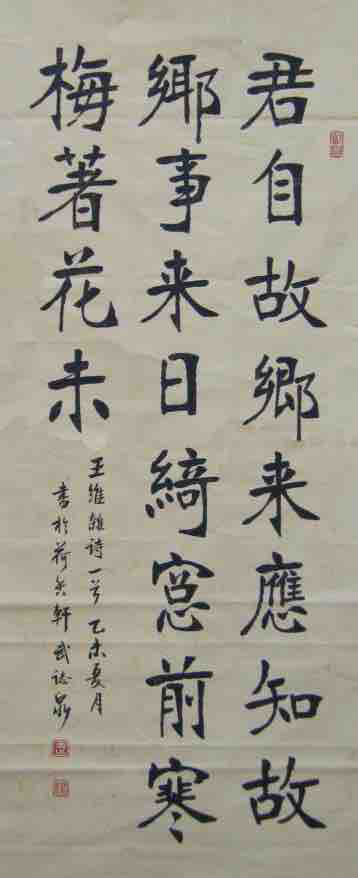 君自故鄉来應知故
鄉事来日綺窓前寒
梅著花未
王維雜詩一首乙未夏月
書於荷香軒武誌泉